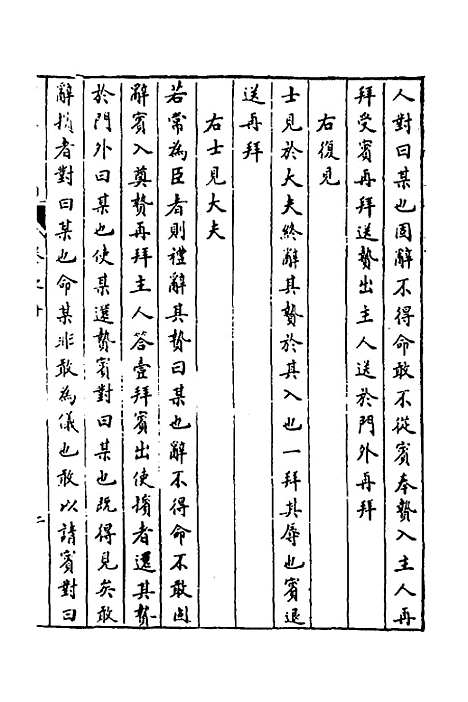 人對曰某也固辭不得命敢不從賓奉贄入主人再
拜受賓再拜送贄出主人送於門外再拜
右復見
士見於大夫終辭其贄於其入也一拜其辱也賓退
送再拜
右士見大夫
若常為臣者則禮辭其贄曰某也辭不得命不敢固
辭賓入奠贄再拜主人答壹拜賓出使擯者還其贄
於門外曰某也使某還贄賓對曰某也既得見矣敢
辭擯者對曰某也命某非敢為儀也敢以請賓對曰